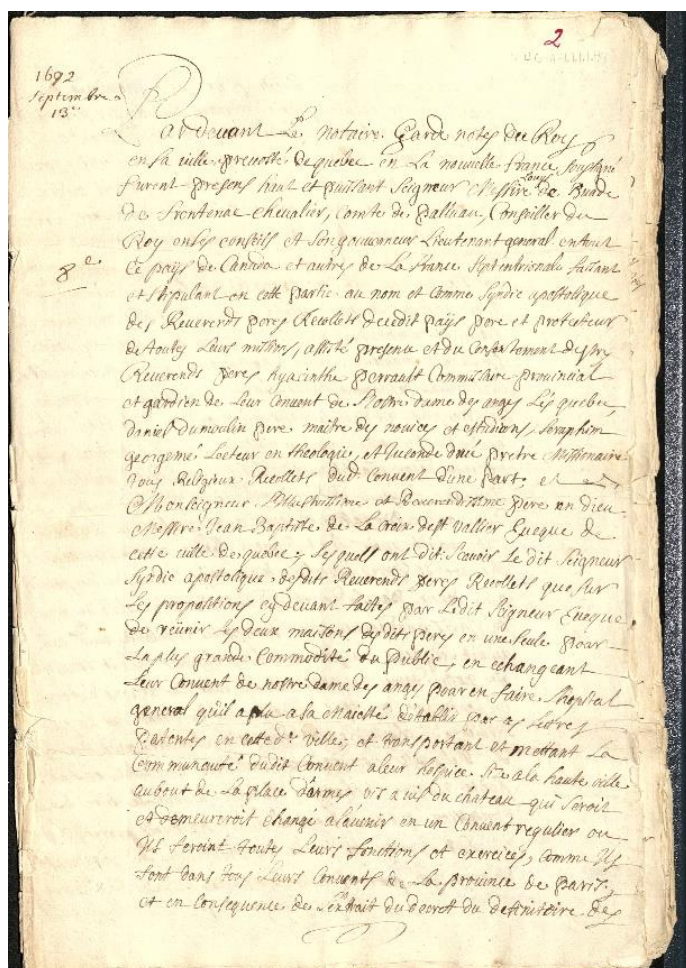 2
1692
Septembre
13
Pardevant Le notaire Garde notes du Roy
en sa ville prevosté de quebec en La nouvelle france soussigné
furent presens haut et puissant Seigneur Messire Louis de Buade
de frontenac chevalier, Comte de palluau, Conseiller du
Roy en ses conseils et son gouverneur Lieutenant general en tout
8e
Ce pays de Canada et autres de La france septentrionale faisant
et stipulant en cette partie au nom et Comme syndic apostolique
des Reverends peres Recollets de cedit païs pere et protecteur
de toutes Leurs missions, assisté presence et du Consentement des
Reverends peres hyacinthe perrault Commissaire provincial
et gardien de Leur Convent de Nostre dame des anges Lés quebec,
daniel dumoulin pere maitre des novices et estudians, Seraphin
georgemé Lecteur en theologie, et Juconde drué pretre Missionaire
tous Religieux Recollets dud Convent d'une part, et
Monseigneur Illustrissime et Reverendissime pere en dieu
Messire Jean Baptiste de La Croix de st vallier Eveque de
cette ville de quebec, Lesquels ont dit: Scavoir Le dit Seigneur
syndic apostolique desdits Reverends peres Recollets que sur
Les propositions cy devant faites par Ledit Seigneur Eveque
de reünir Les deux maisons desdits peres en une seule pour
La plus grande Commodité du public, en echangeant
Leur Convent de nostre dame des anges pour en faire L'hopital
general qu'il a plu a sa Maiesté d'etablir par ses Lettres
Patentes en cette de ville, et transportant et mettant La
Communauté dudit Convent a leur hospice size a la haute ville
au bout de La place d'armes vis a vis du chateau qui seroit
et demeureroit changé a l'avenir en un Convent regulier ou
Ils feroint toutes Leurs fonctions et exercices, comme Ils
font dans tous Leurs Convents de La province de paris,
et en Consequence de L'extrait du decret du definitoire des